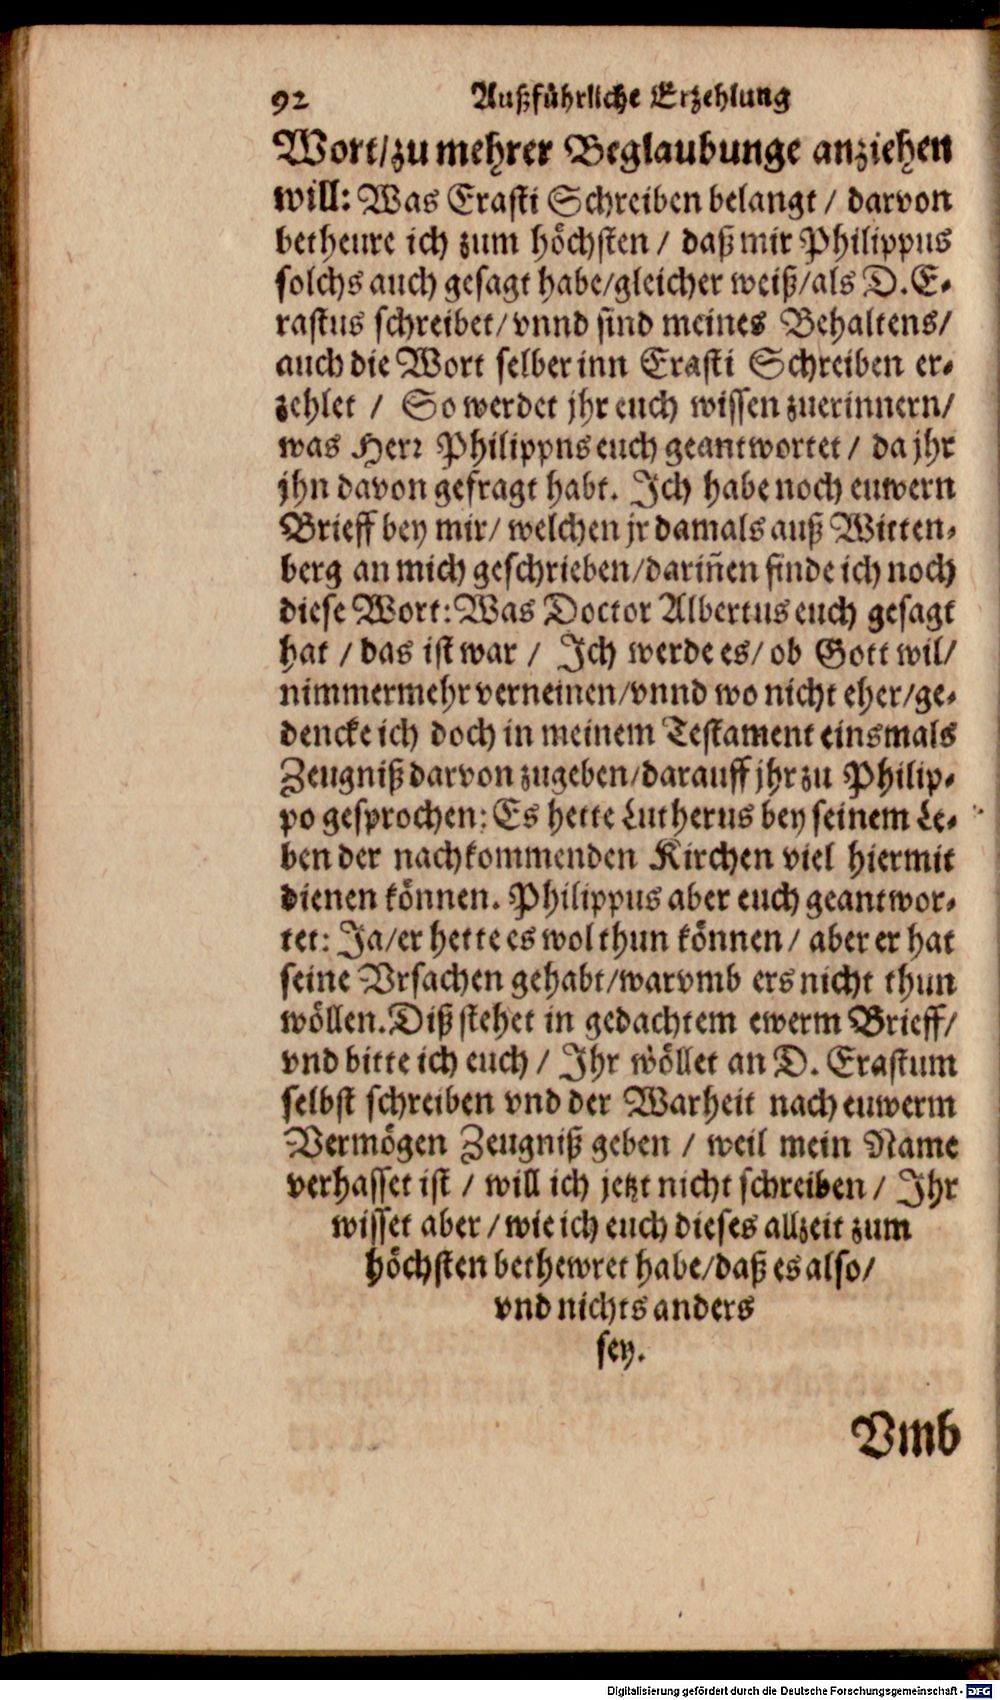 92 Außführliche Erzehlung
Wort/zu mehrer Beglaubunge anziehen
will: Was Erasti Schreiben belangt / darvon
betheure ich zum höchsten / daß mir Philippus
solchs auch gesagt habe/gleicher weiß/als D. E-
rastus schreibet/vnnd sind meines Behaltens/
auch die Wort selber inn Erasti Schreiben er-
zehlet / So werdet jhr euch wissen zuerinnern/
was Herr Philippns euch geantwortet / da jhr
jhn davon gefragt habt. Ich habe noch euwern
Brieff bey mir/ welchen jr damals auß Witten-
berg an mich geschrieben/dariñen finde ich noch
diese Wort: Was Doctor Albertus euch gesagt
hat / das ist war / Ich werde es/ ob Gott wil/
nimmermehr verneinen/vnnd wo nicht eher/ge-
dencke ich doch in meinem Testament einsmals
Zeugniß darvon zugeben/darauff jhr zu Philip-
po gesprochen: Es hette Lutherus bey seinem Le-
ben der nachkommenden Kirchen viel hiermit
dienen können. Philippus aber euch geantwor-
tet: Ja/er hette es wol thun können / aber er hat
seine Vrsachen gehabt/warvmb ers nicht thun
wöllen. Diß stehet in gedachtem ewerm Brieff/
vnd bitte ich euch / Ihr wöllet an D. Erastum
selbst schreiben vnd der Warheit nach euwerm
Vermögen Zeugniß geben / weil mein Name
verhasset ist / will ich jetzt nicht schreiben / Ihr
wisset aber / wie ich euch dieses allzeit zum
höchsten bethewret habe/daß es also/
vnd nichts anders
sey.
Vmb
Digitalisierung gefördert durch die Deutsche Forschungsgemeinschaft - DFG